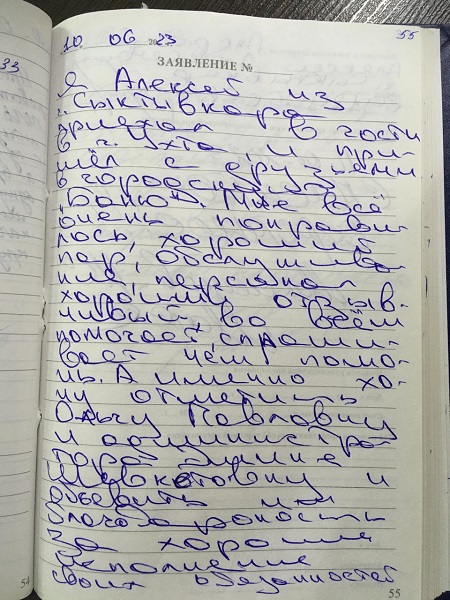 10 06 2023 55
ЗАЯВЛЕНИЕ №
33
Я Алексей из
г. Сыктывкара
приехал в гости
в г. Ухта и при-
шёл с друзьями
в городскую
"Баню". Мне всё
очень понрави-
лось, хороший
пар, обслужива
ние, персонал
хороший отзыв-
чивый во всём
помогает, спраши-
вает чем помо-
чь. А именно хо-
чу отметить
Ольгу Павловну
и администра-
тора
Шавкатовну и
объявить им
благодарность
за хорошие
исполнение
своих обязанностей
54
55